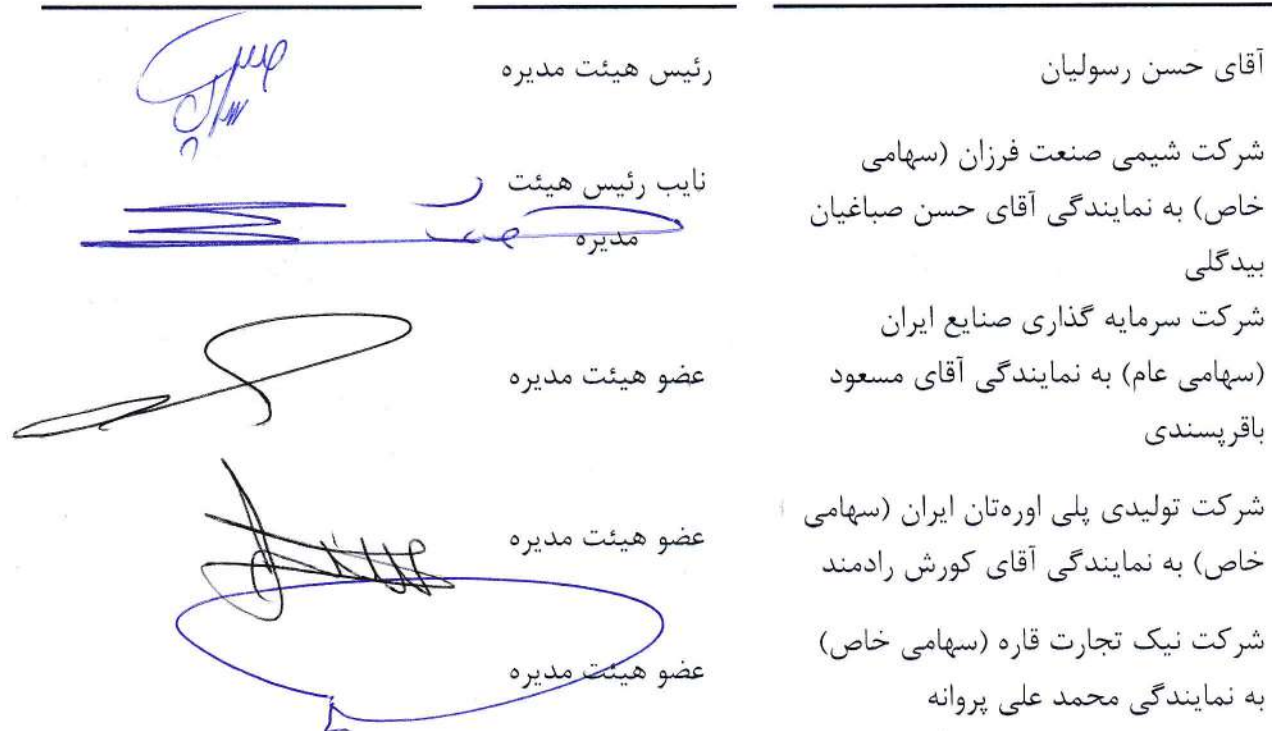 آقای حسن رسولیان
رئیس هیئت مدیره
شرکت شیمی صنعت فرزان (سهامی
خاص) به نمایندگی آقای حسن صباغیان
بیدگلی
نایب رئیس هیئت
مدیره
شرکت سرمایه گذاری صنایع ایران
(سهامی عام) به نمایندگی آقای مسعود
باقرپسندی
عضو هیئت مدیره
شرکت تولیدی پلی اوره‌تان ایران (سهامی
خاص) به نمایندگی آقای کورش رادمند
عضو هیئت مدیره
شرکت نیک تجارت قاره (سهامی خاص)
به نمایندگی محمد علی پروانه
عضو هیئت مدیره